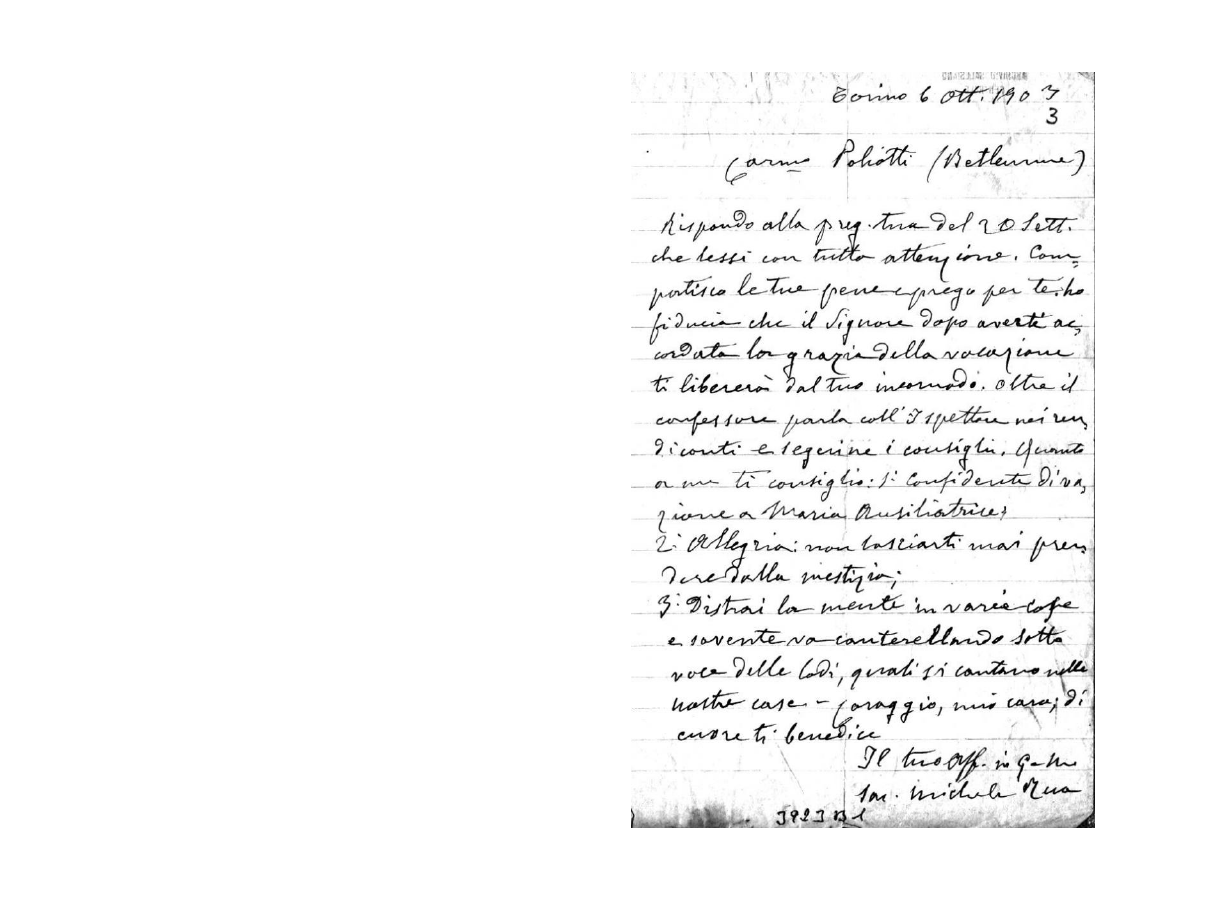 Torino 6 Ott. 1903
3
Carmo Poliotti (Betlemme)
Rispondo alla preg. tua del 20 Sett.
che lessi con tutta attenzione. Com=
patisco le tue pene e prego per te: ho
fiducia che il Signore dopo averti ac=
cordata la grazia della vocazione
ti libererà dal tuo incomodo. Oltre il
confessore parla coll'Ispettore nei ren=
diconti e seguine i consigli. Quanto
a me ti consiglio: 1° Confidente divo=
zione a Maria Ausiliatrice;
2° Allegria: non lasciarti mai pren=
dere dalla mestizia;
3° Distrai la mente in varie cose
e sovente va canterellando sotto
voce delle lodi, quali si cantano nelle
nostre case - Coraggio, mio caro; di
cuore ti benedice
Il tuo aff. in G. e M.
Sac. Michele Rua
3923 B 1